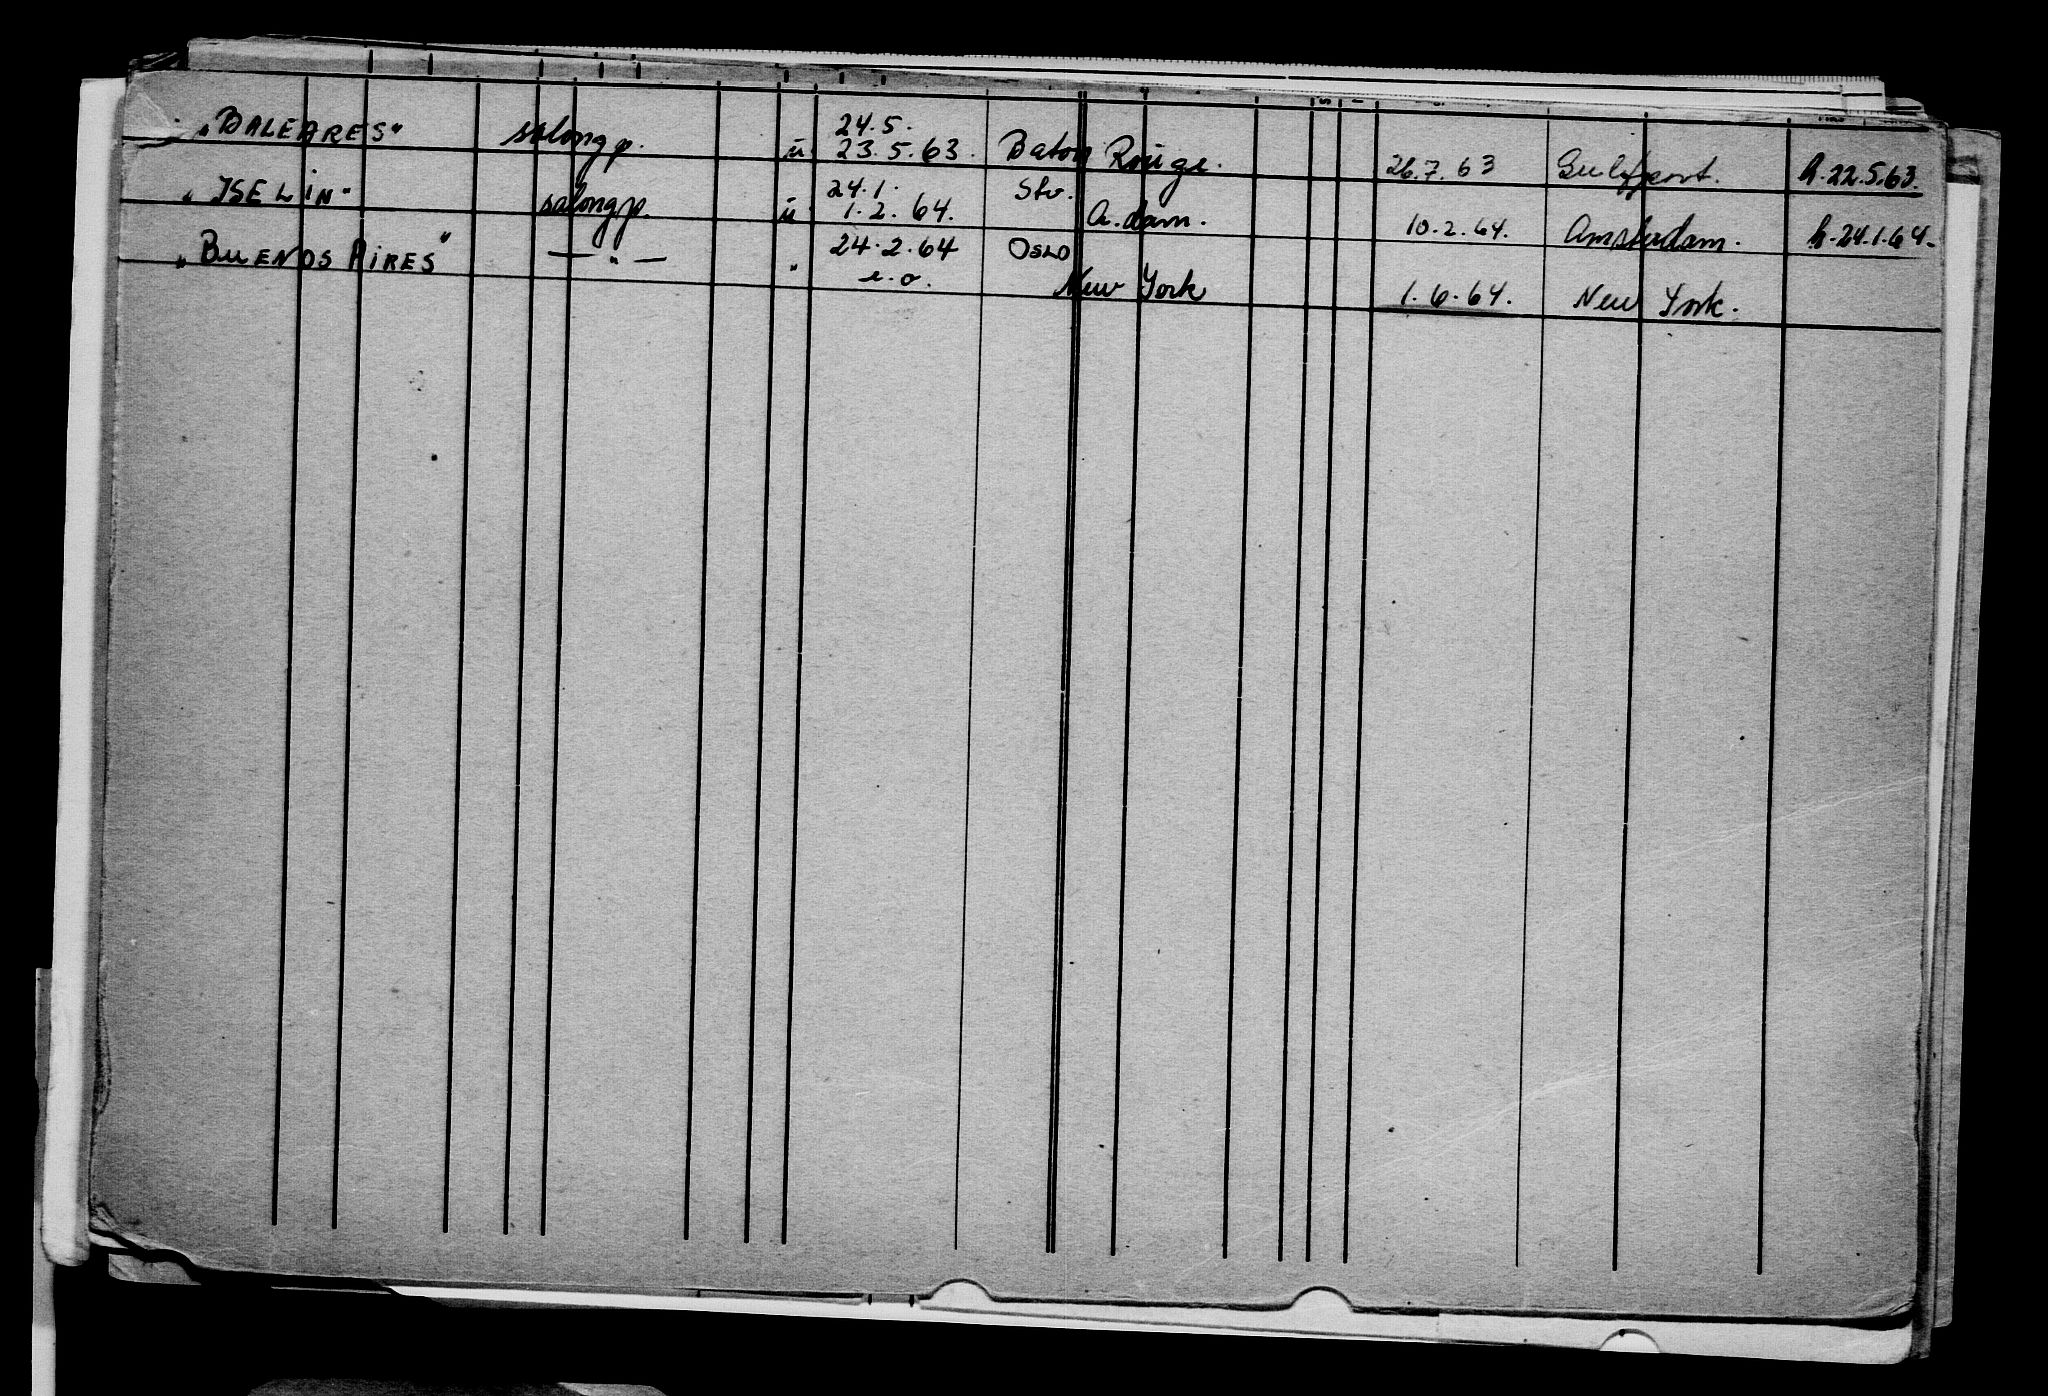 24.5.
„BALEARES" salongp. u. 23.5.63. Baton Rouge. 26.7.63 Gulfport. h.22.5.63.
24.1. Stv.
„ISELIN" salongp. u 1.2.64. A.dam. 10.2.64. Amsterdam. h.24.1.64.
24.2.64 Oslo
„BUENOS AIRES" —„— " e.o. New York 1.6.64. New York.